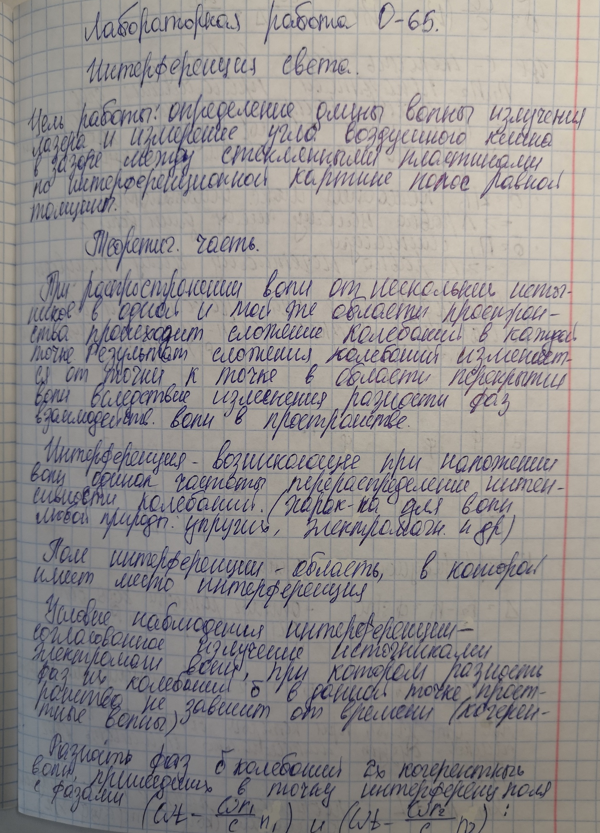 Лабораторная работа О-65.
Интерференция света.
Цель работы: определение длины волны излучения
лазера и измерение угла воздушного клина
в зазоре между стеклянными пластинками
по интерференционной картине полос равной
толщины.
Теоретич. часть.
При распространении волн от нескольких источ-
ников в одной и той же области простран-
ства происходит сложение колебаний в каждой
точке Результат сложения колебаний изменяет-
ся от точки к точке в области перекрытия
волн вследствие изменения разности фаз
взаимодейств. волн в пространстве.
Интерференция - возникающее при наложении
волн одинак частоты перераспределение интен-
сивности колебаний. (харак-на для волн
любой природы: упругих, электромагн. и др)
Поле интерференции - область, в которой
имеет место интерференция
Условие наблюдения интерференции-
согласованное излучение источниками
электромагн волн, при котором разность
фаз их колебаний δ в данной точке прост-
ранства не зависит от времени (когерен-
тные волны)
Разность фаз δ колебаний 2х когерентных
волн пришедших в точку интерференц поля
с фазами (ωt - ωn₁/c r₁) и (ωt - ωn₂/c r₂) :